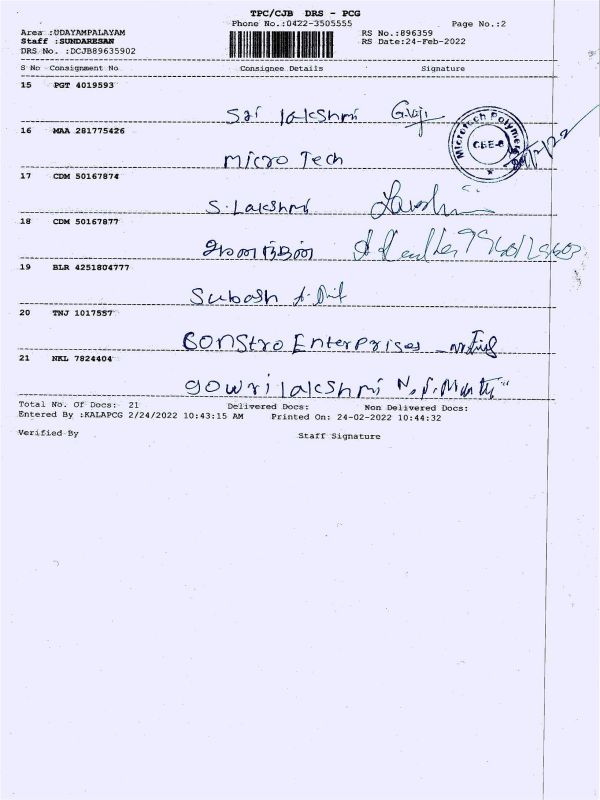 TPC/CJB DRS - PCG
Phone No.:0422-3505555 Page No.:2
Area :UDAYAMPALAYAM RS No.:896359
Staff :SUNDARESAN RS Date:24-Feb-2022
DRS No. :DCJB89635902
S No Consignment No Consignee Details Signature
15 PGT 4019593
Sri lakshmi
16 MAA 281775426
Micro Tech
Microtech Polymer
CBE-6
17 CDM 50167874
S. Lakshmi
18 CDM 50167877
ஆனந்தன்
19 BLR 4251804777
Subash
20 TNJ 1017557
Bonstro Enterprises
21 NKL 7824404
gowri lakshmi
Total No. Of Docs: 21 Delivered Docs: Non Delivered Docs:
Entered By :KALAPCG 2/24/2022 10:43:15 AM Printed On: 24-02-2022 10:44:32
Verified By Staff Signature